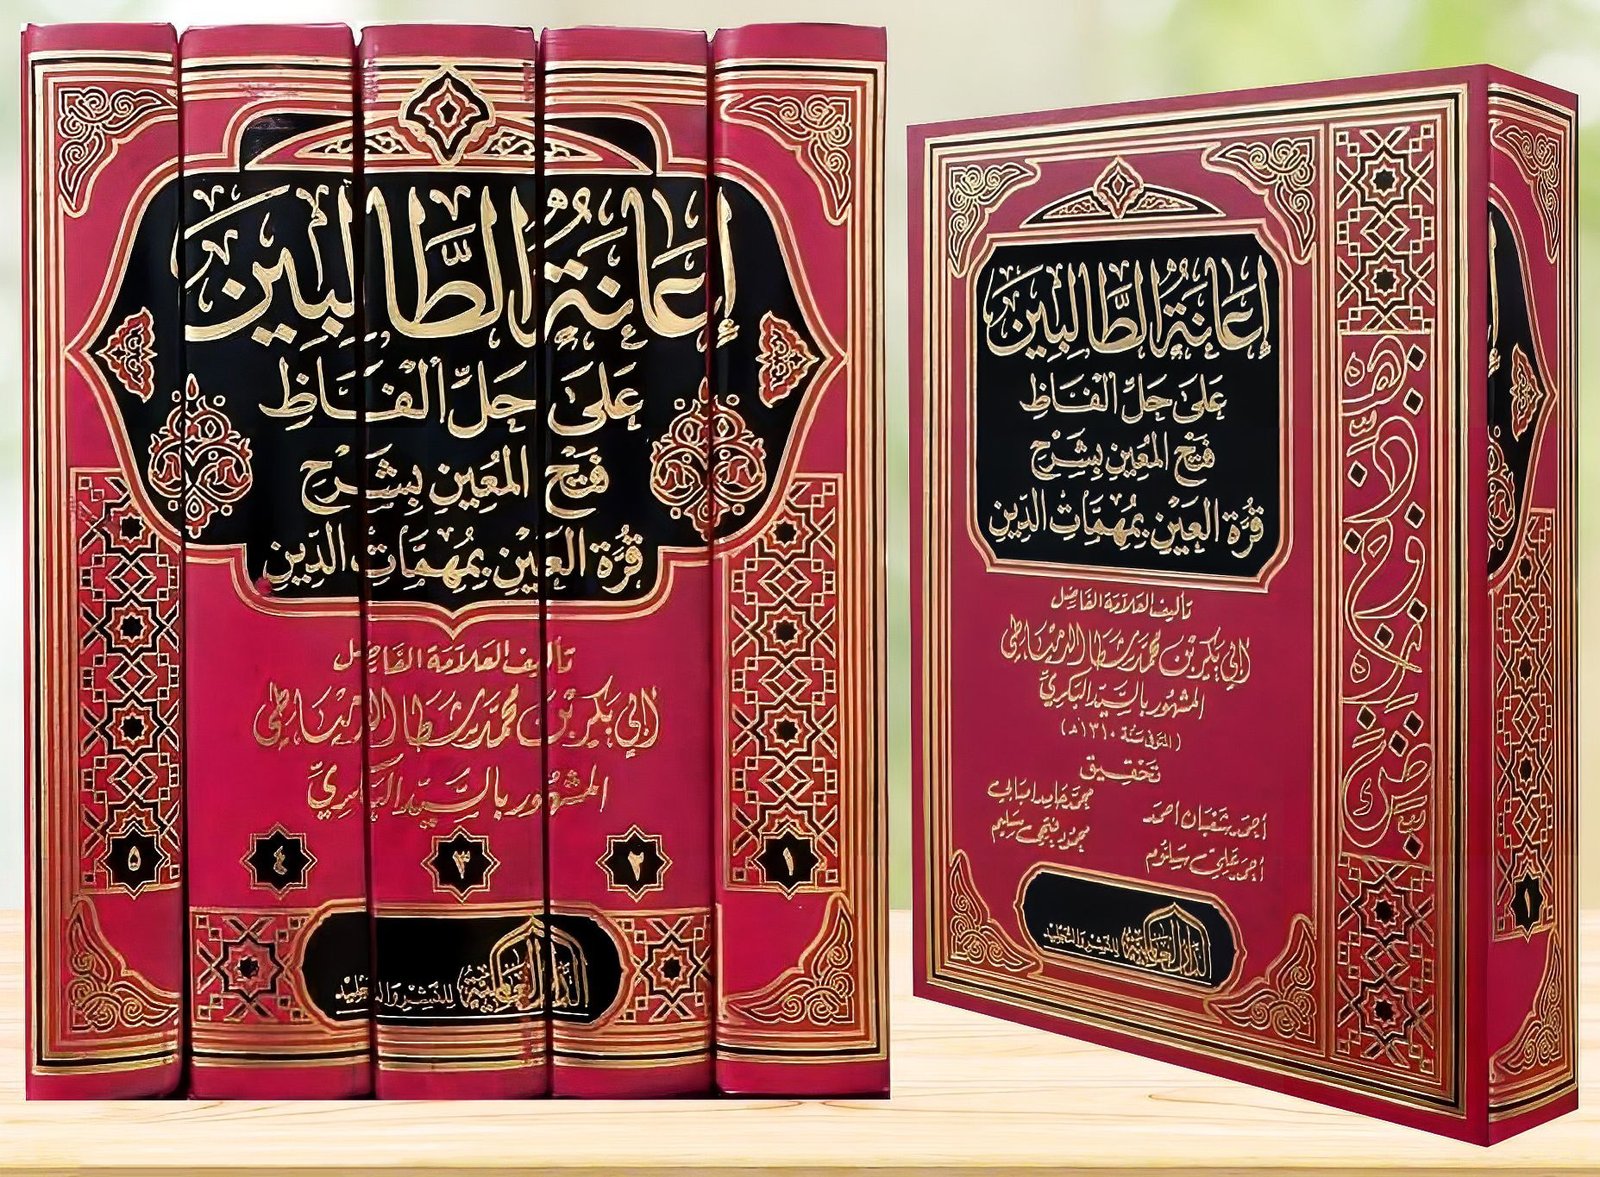 إِعَانَةُ الطَّالِبِينَ
عَلَىٰ حَلِّ أَلْفَاظِ
فَتْحِ الْمُعِينِ بِشَرْحِ
قُرَّةِ الْعَيْنِ بِمُهِمَّاتِ الدِّينِ
تأليف العلامة الفاضل
أبي بكر بن محمد شطا الدمياطي
المشهور بالسيد البكري
٥ ٤ ٣ ٢ ١
الدار العالمية للنشر والتجليد
إِعَانَةُ الطَّالِبِينَ
عَلَىٰ حَلِّ أَلْفَاظِ
فَتْحِ الْمُعِينِ بِشَرْحِ
قُرَّةِ الْعَيْنِ بِمُهِمَّاتِ الدِّينِ
تأليف العلامة الفاضل
أبي بكر بن محمد شطا الدمياطي
المشهور بالسيد البكري
(المتوفى سنة ١٣١٠هـ)
تحقيق
أحمد شعبان أحمد محمد حامد
أحمد علي سلوم محمود فتحي سليم
الدار العالمية للنشر والتجليد
١